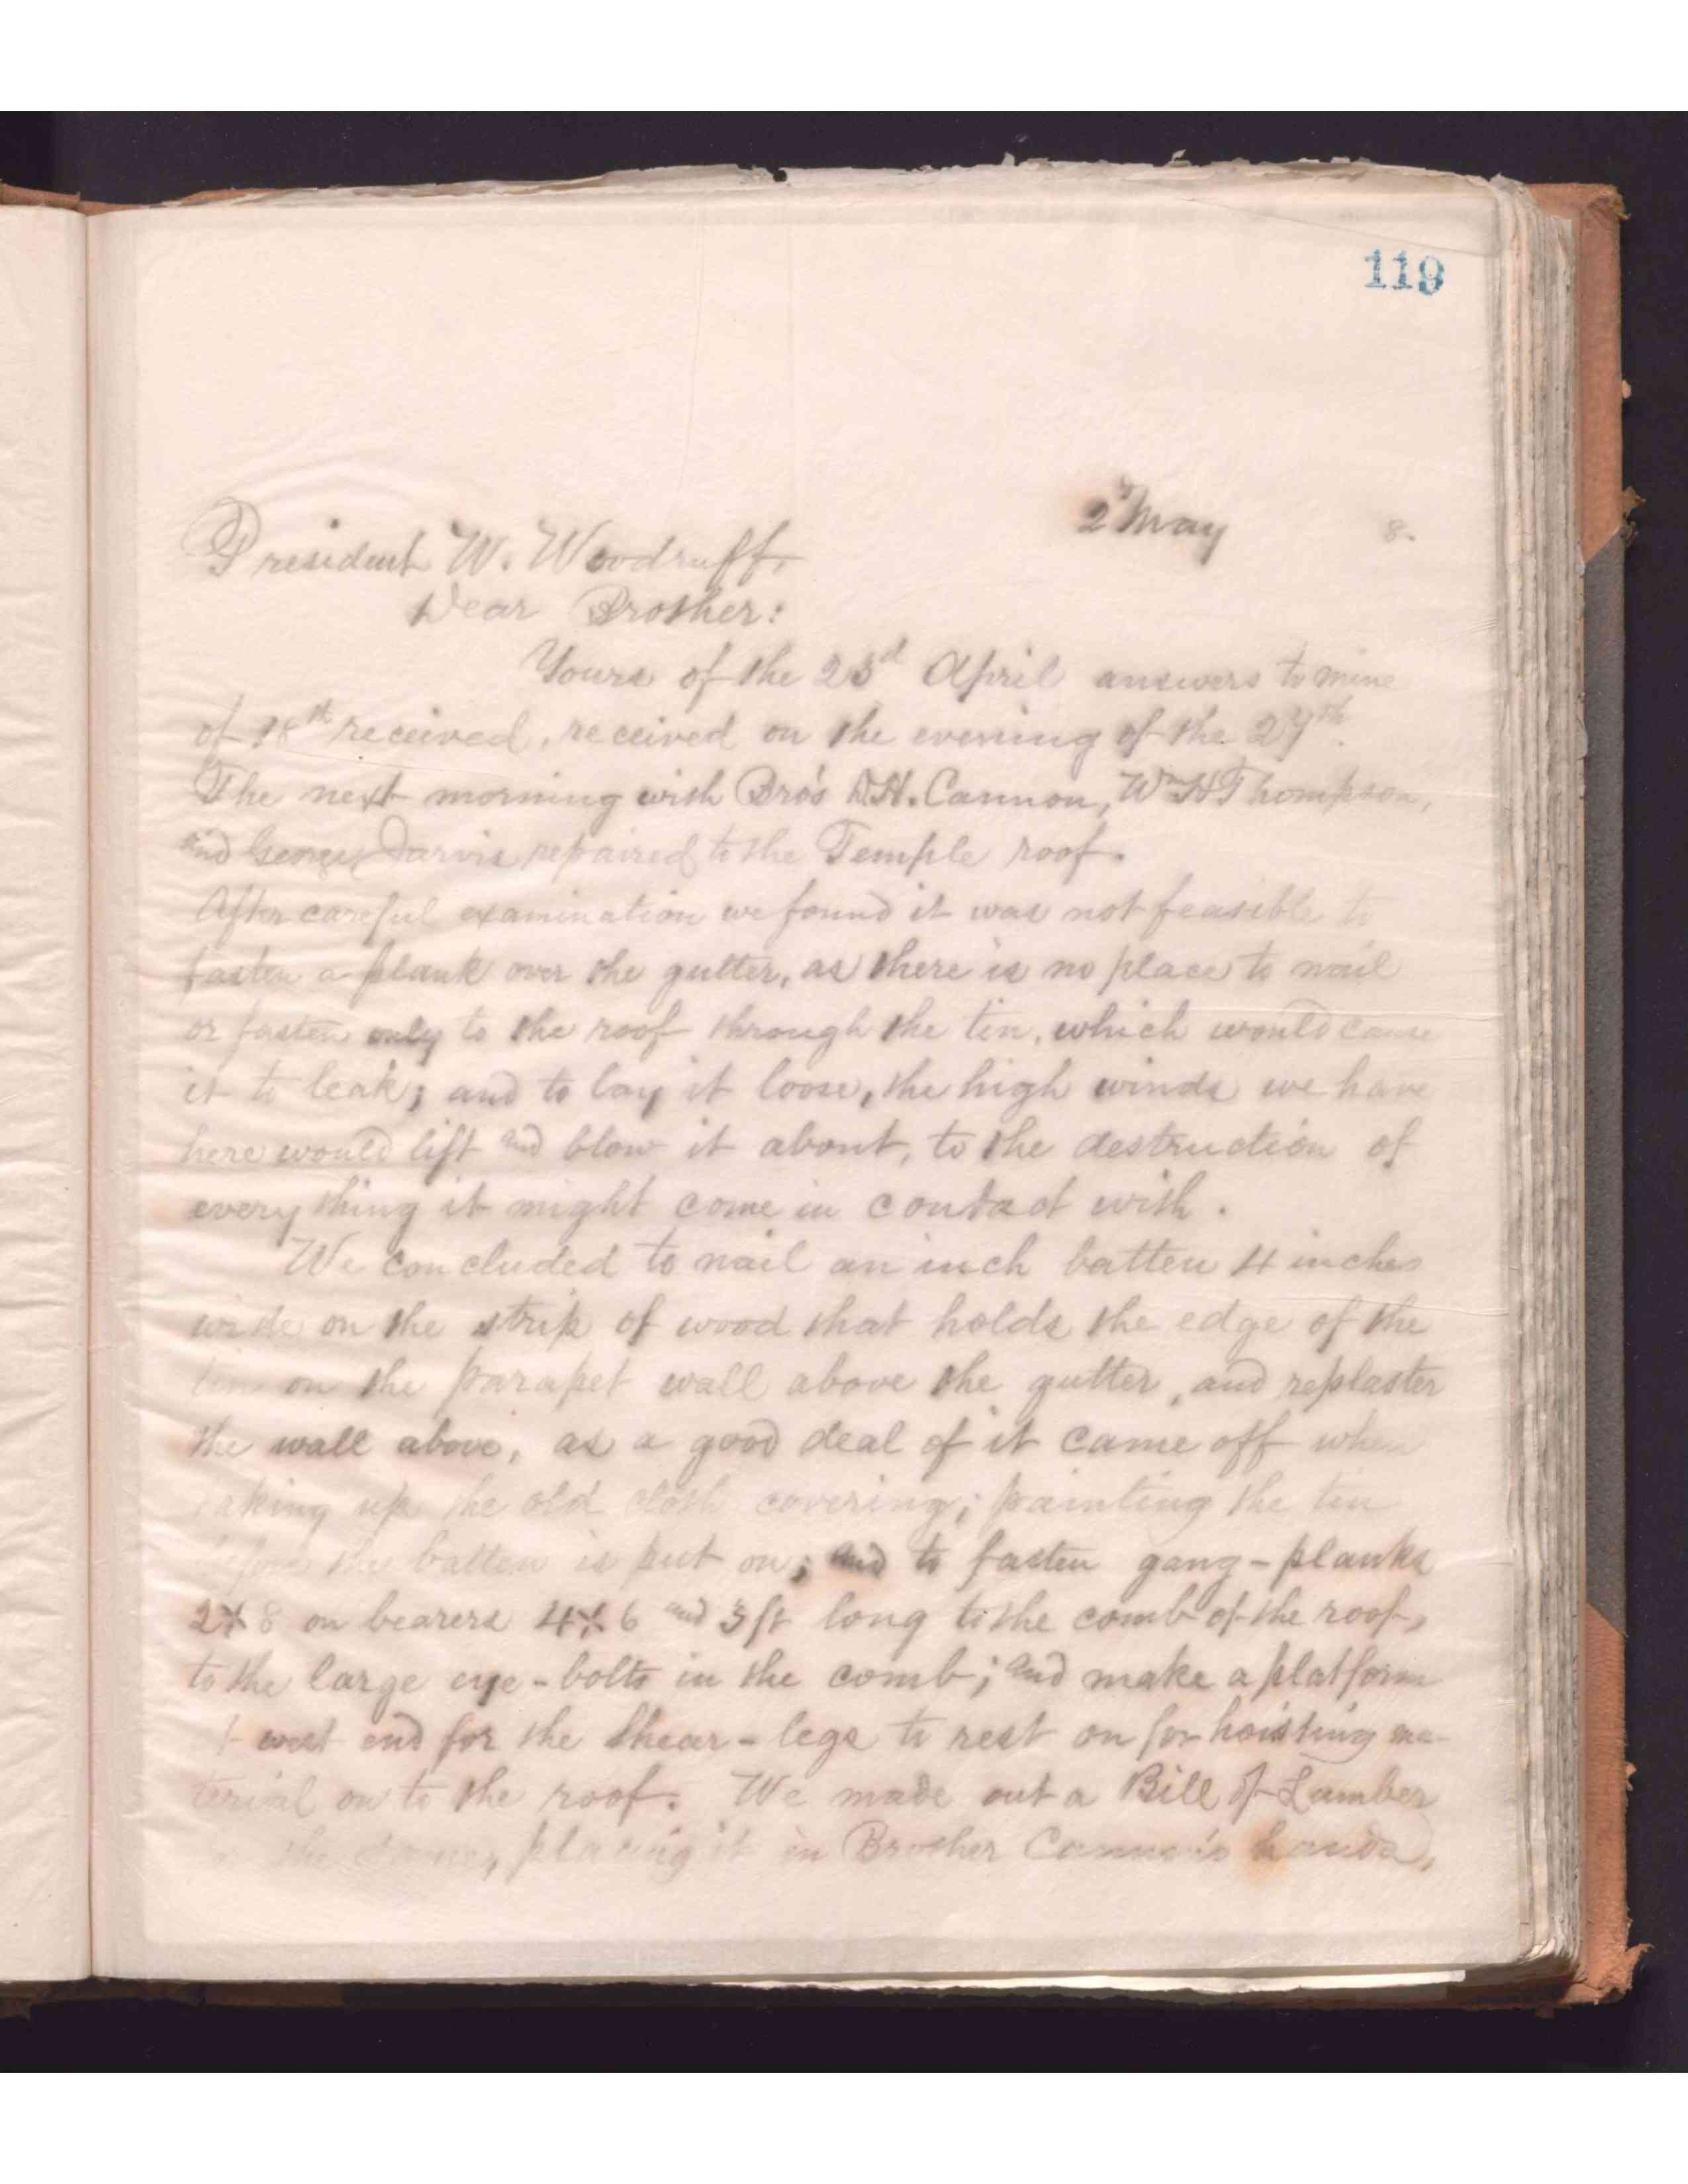 119
2 May 8.
President W. Woodruff,
Dear Brother:
Yours of the 23d April answers to mine
of 18th received, received on the evening of the 27th.
The next morning with Bro's D.H. Cannon, Wm H Thompson,
and George Jarvis repaired to the Temple roof.
After careful examination we found it was not feasible to
fasten a plank over the gutter, as there is no place to nail
or fasten only to the roof through the tin, which would cause
it to leak; and to lay it loose, the high winds we have
here would lift and blow it about, to the destruction of
every thing it might come in contact with.
We concluded to nail an inch batten 4 inches
wide on the strip of wood that holds the edge of the
tin on the parapet wall above the gutter, and replaster
the wall above, as a good deal of it came off when
taking up the old cloth covering; painting the tin
before the batten is put on; and to fasten gang-planks
2 x 8 on bearers 4 x 6 and 3 ft long to the comb of the roof,
to the large eye-bolts in the comb; and make a platform
west end for the shear-legs to rest on for hoisting ma-
terial on to the roof. We made out a Bill of Lumber
the placing it in Brother Cannon's hands,